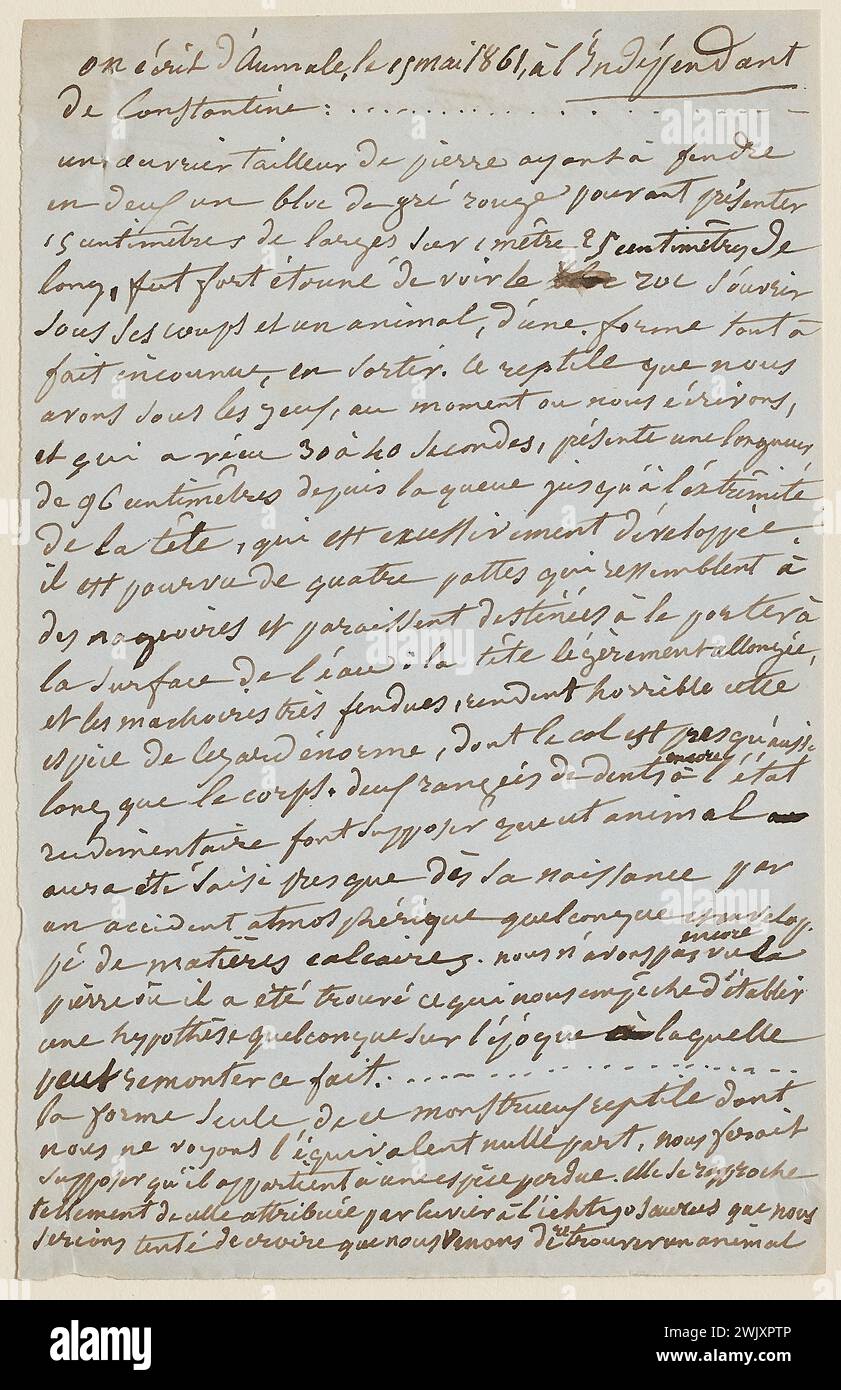 on écrit d'Aumale, le 15 mai 1861, à l'Indépendant
de Constantine : ..............
un ouvrier tailleur de pierre ayant à fendre
en deux un bloc de gré rouge pouvant présenter
15 centimètres de larges sur 1 mètre 25 centimètres de
long, fut fort étoné de voir le roc s'ouvrir
sous ses coups et un animal, d'une forme tout à
fait inconnue, en sortir. Ce reptile que nous
avons sous les yeux, au moment ou nous écrivons,
et qui a vécu 30 à 40 secondes, présente une longueur
de 96 centimêtres depuis la queue jusqu'à l'extrêmité
de la tête, qui est excessivement développée.
il est pourvu de quatre pattes qui ressemblent à
des nageoires et paraissent destinées à le porter à
la surface de l'eau : la tête légèrement allongée,
et les machoires très fendues, rendent horrible cette
espèce de lezard énorme, dont le col est presqu'aussi
long que le corps. deux rangées de dents encore à l'état
rudimentaire font supposer que cet animal
aura été saisi presque dès sa naissance par
un accident atmosphérique quelconque et envelop-
pé de matières calcaires. nous n'avons pas encore vu la
pierre où il a été trouvé ce qui nous empêche d'établir
une hypothèse quelconque sur l'époque à laquelle
peut remonter ce fait. ..............
la forme seule de ce monstrueux reptile dont
nous ne voyons l'équivalent nulle part, nous ferait
supposer qu'il appartient à une espèce perdue. elle se rapproche
tellement de celle attribuée par Cuvier à l'ichtyosaurus que nous
serions tenté de croire que nous venons de retrouver un animal
alamy
Image ID: 2WJXPTP
www.alamy.com